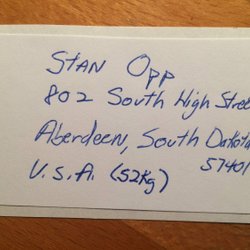 STAN OPP
802 South High Stree
Aberdeen, South Dakota
57401
U.S.A. (52Kg)